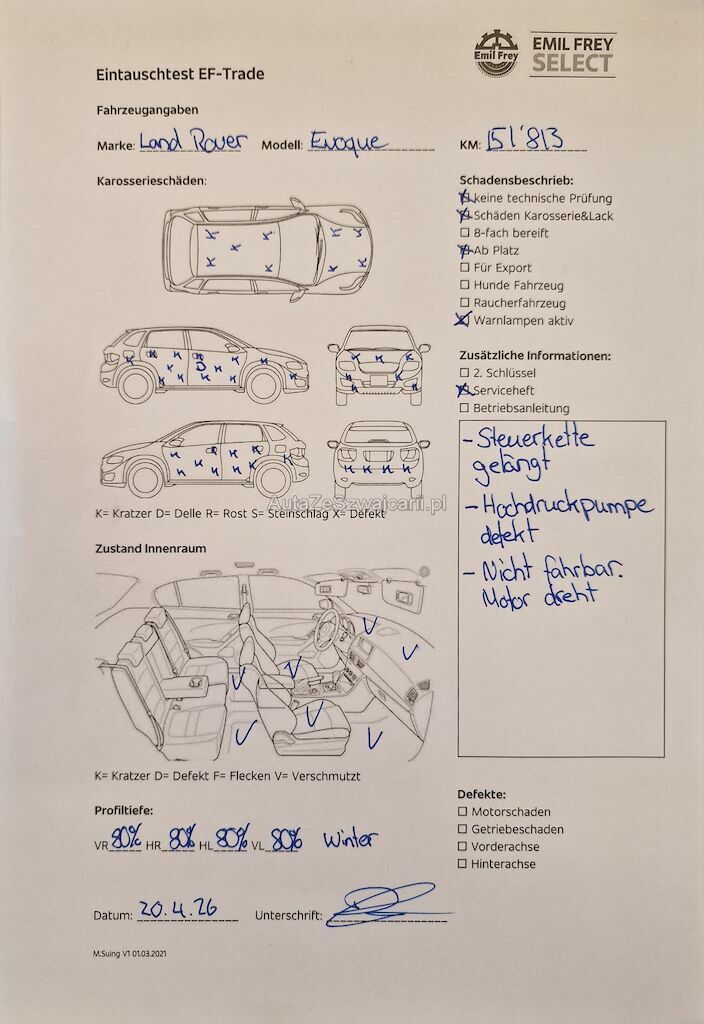 Emil Frey
EMIL FREY
SELECT
Eintauschtest EF-Trade
Fahrzeugangaben
Marke: Land Rover Modell: Evoque KM: 151'813
Karosserieschäden:
Schadensbeschrieb:
keine technische Prüfung
Schäden Karosserie&Lack
8-fach bereift
Ab Platz
Für Export
Hunde Fahrzeug
Raucherfahrzeug
Warnlampen aktiv
Zusätzliche Informationen:
2. Schlüssel
Serviceheft
Betriebsanleitung
- Steuerkette
gelängt
- Hochdruckpumpe
defekt
- Nicht fahrbar.
Motor dreht
K K K K K K K K K
K K K K K K D K K K K K K K
K K K K K K K
K K K K K K K K K K
K K K K
AutaZeSzwajcarii.pl
K= Kratzer D= Delle R= Rost S= Steinschlag X= Defekt
Zustand Innenraum
V V V V V V V
K= Kratzer D= Defekt F= Flecken V= Verschmutzt
Profiltiefe:
VR 80% HR 80% HL 80% VL 80% Winter
Defekte:
Motorschaden
Getriebeschaden
Vorderachse
Hinterachse
Datum: 20.4.26 Unterschrift:
M.Suing V1 01.03.2021